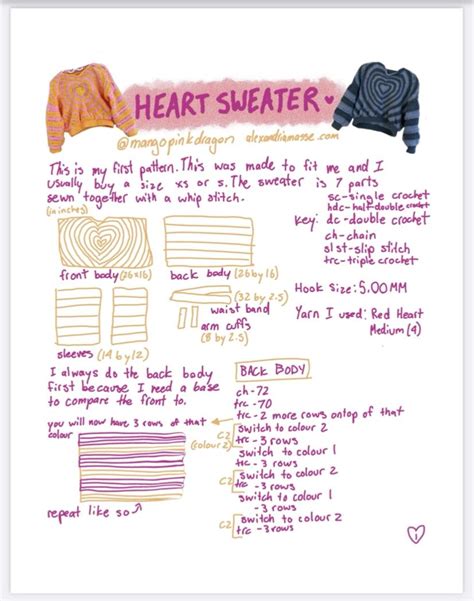 HEART SWEATER
@mangopinkdragon alexandriamasse.com
This is my first pattern. This was made to fit me and I
usually buy a size xs or s. The sweater is 7 parts
sewn together with a whip stitch.
(in inches)
key:
sc-single crochet
hdc-half double crochet
dc-double crochet
ch-chain
sl st-slip stitch
trc-triple crochet
front body (26x16)
back body (26 by 16)
(32 by 2.5)
waist band
arm cuffs
(8 by 2.5)
sleeves (14 by 12)
Hook Size: 5.00 MM
Yarn I used: Red Heart
Medium (4)
I always do the back body
first because I need a base
to compare the front to.
you will now have 3 rows of that
colour
repeat like so
BACK BODY
ch-72
trc-70
trc-2 more rows ontop of that
C2 (colour 2)
switch to colour 2
trc-3 rows
switch to colour 1
trc-3 rows
C2
switch to colour 2
trc-3 rows
switch to colour 1
trc-3 rows
C2
switch to colour 2
trc-3 rows
1